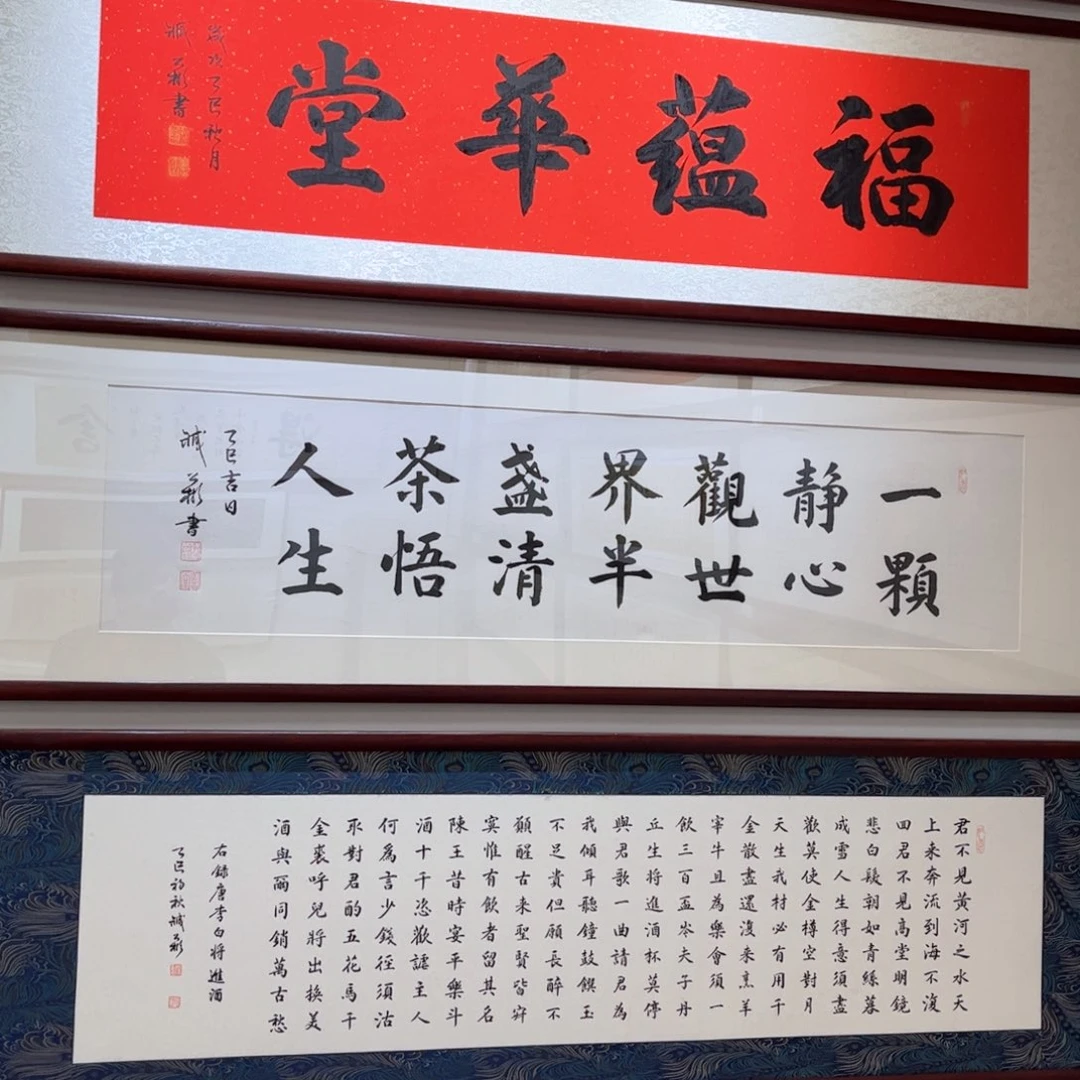 福藴華堂
歲次乙巳秋月
書
一顆
静心
觀世
界半
盞清
茶悟
人生
乙巳吉日
書
君不見黃河之水天
上来奔流到海不復
回君不見高堂明鏡
悲白髮朝如青絲暮
成雪人生得意須盡
歡莫使金樽空對月
天生我材必有用千
金散盡還復来烹羊
宰牛且為樂會須一
飲三百盃岑夫子丹
丘生将進酒杯莫停
與君歌一曲請君為
我傾耳聽鐘鼓饌玉
不足貴但願長醉不
願醒古来聖賢皆寂
寞惟有飲者留其名
陳王昔時宴平樂斗
酒十千恣歡謔主人
何為言少錢徑須沽
取對君酌五花馬千
金裘呼兒將出換美
酒與爾同銷萬古愁
右録唐李白將進酒
乙巳初秋